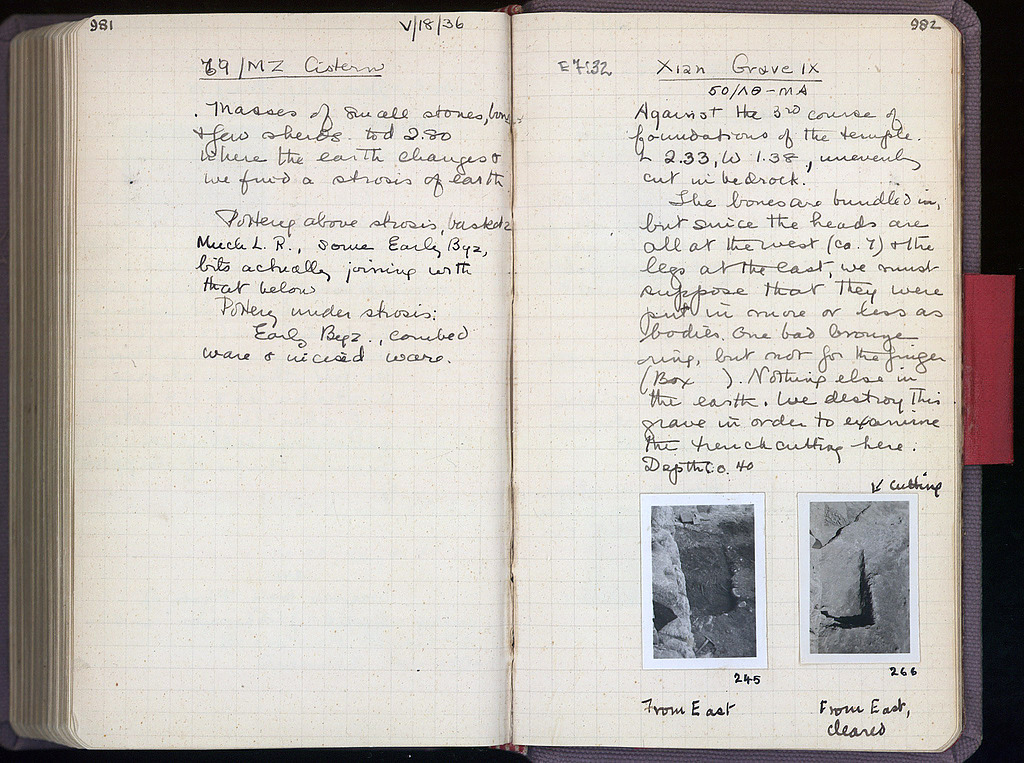 981
V/18/36
69/MZ Cistern
Masses of small stones, bones
& few sherds to d 2.80
where the earth changes &
we find a strosis of earth
Pottery above strosis, basket 2
Much L.R., some Early Byz,
bits actually joining with
that below
Pottery under strosis:
Early Byz., combed
ware & incised ware.
982
E 7:32
Xian Grave IX
50/ΛΘ-MA
Against the 3rd course of
foundations of the temple.
L 2.33, W 1.38, unevenly
cut in bedrock.
The bones are bundled in,
but since the heads are
all at the west (ca. 7) & the
legs at the east, we must
suppose that they were
put in more or less as
bodies. One bad bronze
ring, but not for the finger
(Box ). Nothing else in
the earth. We destroy this
grave in order to examine
the trench cutting here.
Depth 0.40
↙ cutting
245
266
From East
From East,
cleared